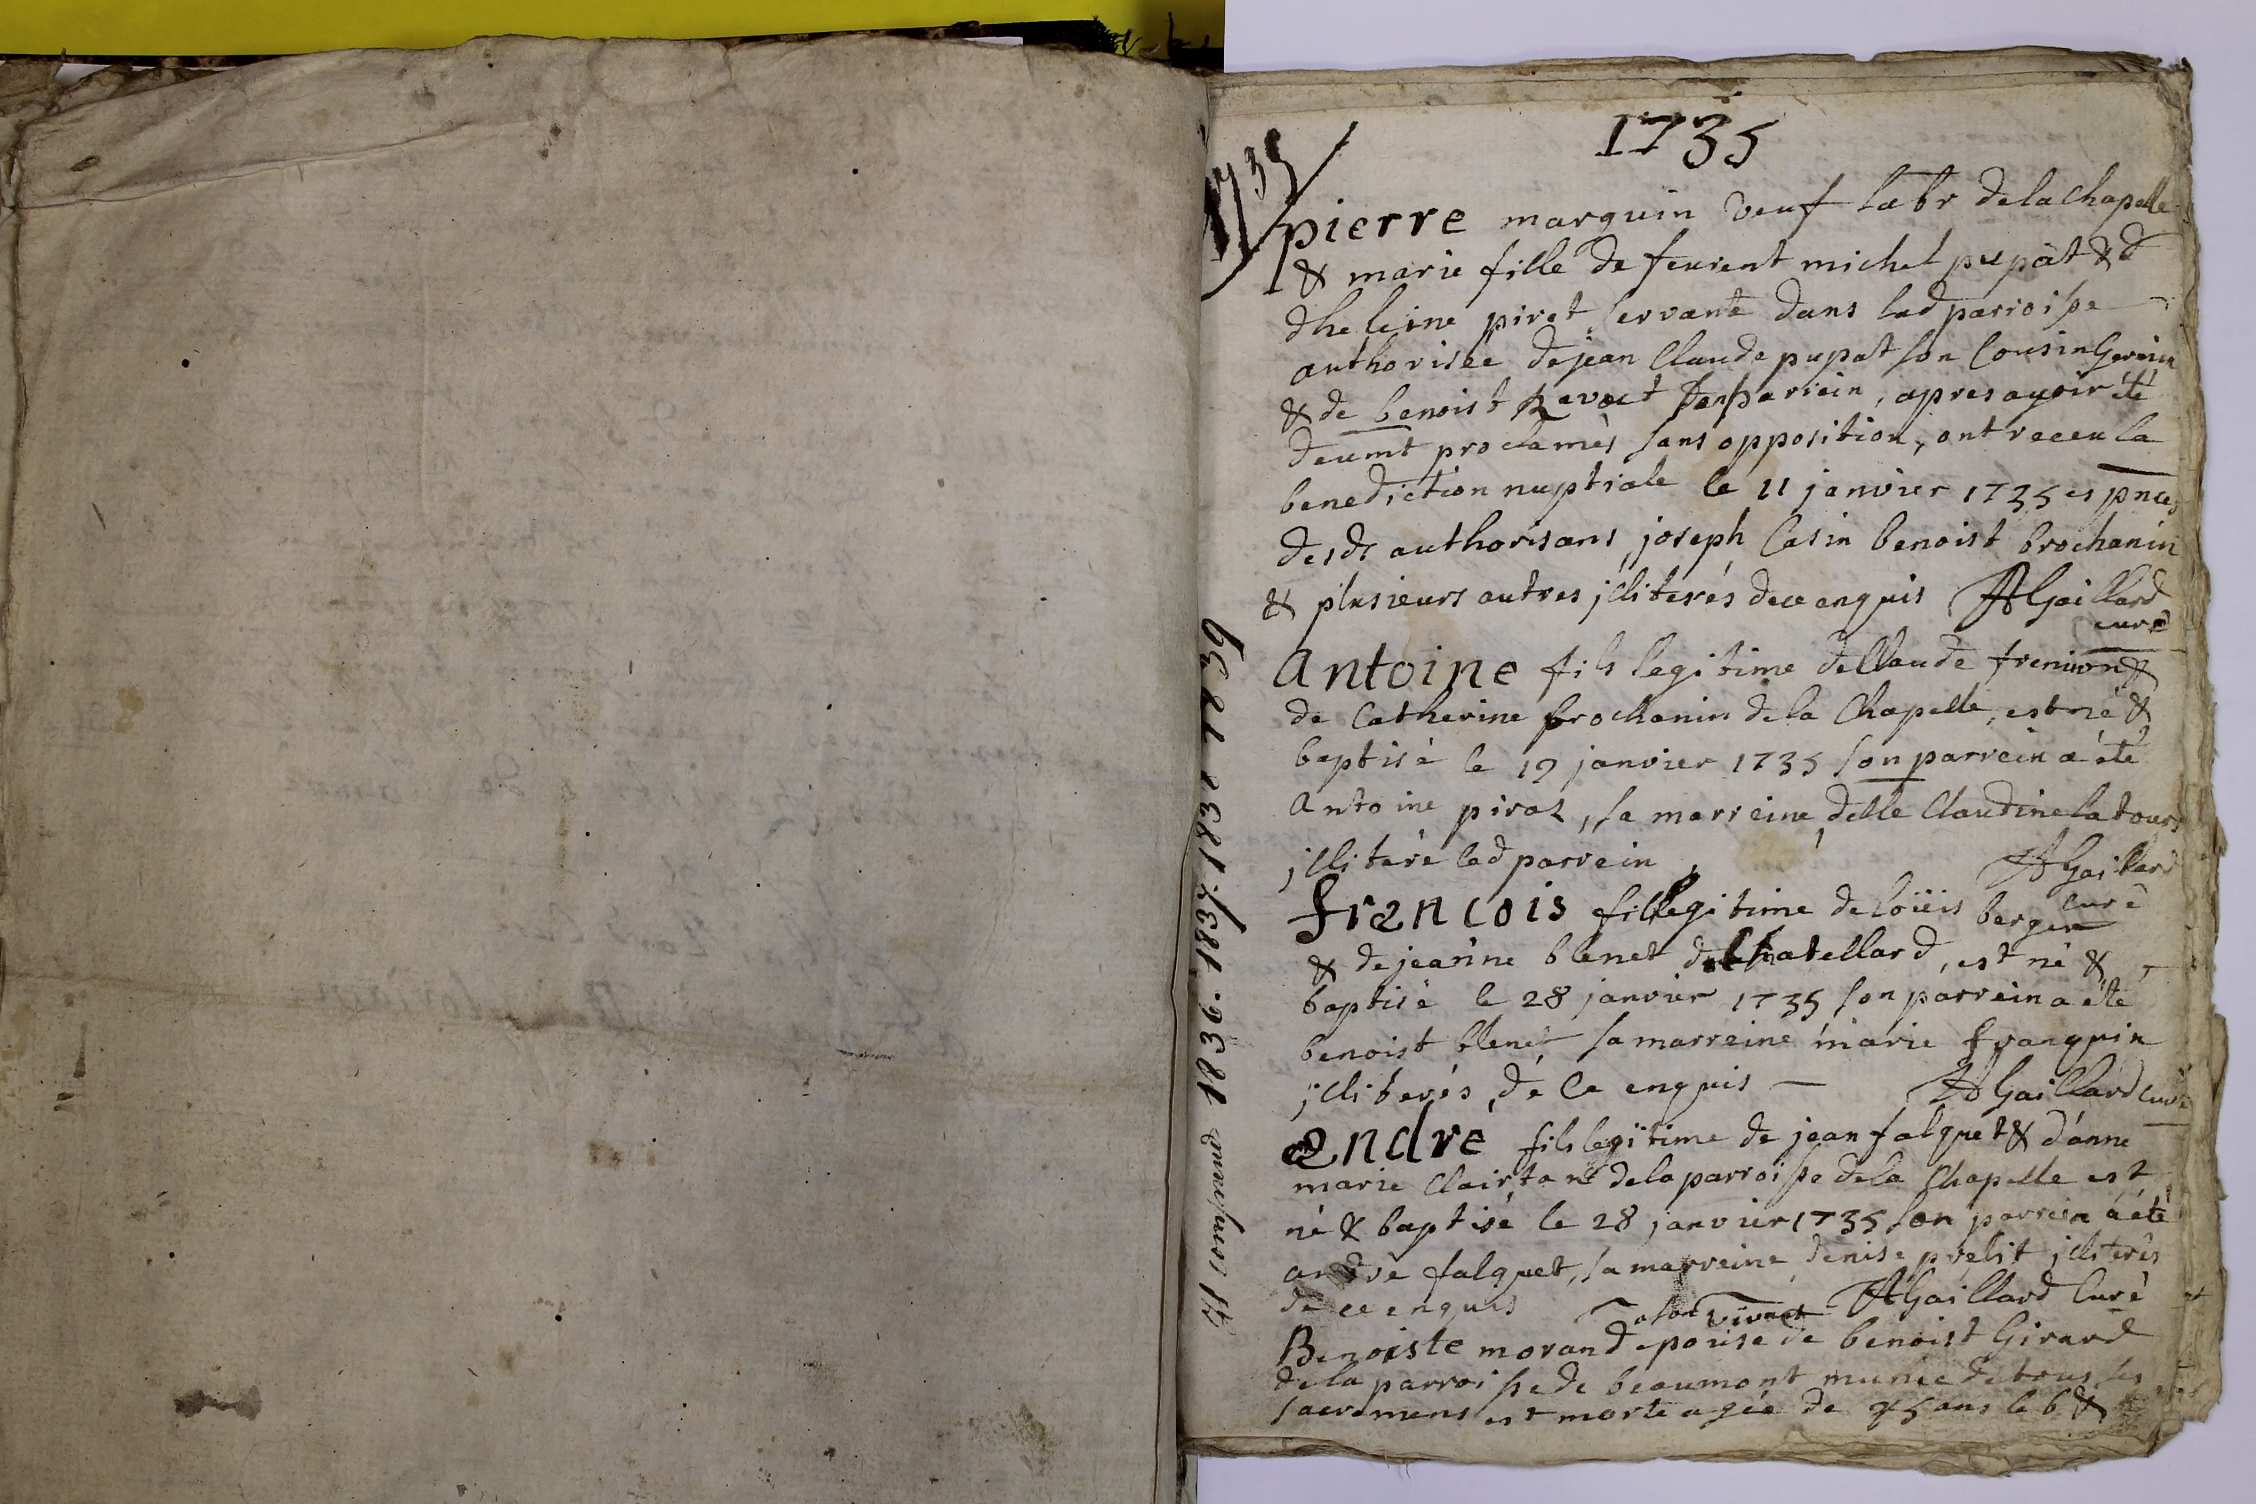 1735
1735
pierre marquin veuf labr de la Chapelle
& marie fille de feurent michel pupat & d
dheleine pirot servante dans lad parroisse
authorisée de jean Claude pupat son Cousin Germin
& de benoist son parrein, apres avoir été
deumt proclamès sans opposition, ont receu la
benediction nuptiale le 11 janvier 1735 es pnces
desds authorisans, joseph Casin benoist brochanin
& plusieurs autres jlliterés de ce enquis AGaillard
curé
Antoine fils legitime de Claude &
de Catherine brochanin de la Chapelle, est né &
baptisé le 19 janvier 1735 son parrein a été
Antoine pirot, sa marreine, delle Claudine latour
jlliteré led parrein, AGaillard
curé
francois fils legitime de loüis berger
& de jeanne blenet de Chatellard, est né &
baptisé le 28 janvier 1735 son parrein a été
benoist blenet sa marreine marie franquin
jlliterés, de Ce enquis AGaillard Curé
André fils legitime de jean falquet & d'anne
marie de la parroisse de la Chapelle est
né & baptisé le 28 janvier 1735 son parrein a été
andre falquet, sa marreine denise prelit jlliterés
de ce enquis AGaillard Curé
a son vivant
Benoiste morand epouse de benoist Girard
de la parroisse de beaumont munie de tous les
sacremens est morte agée de 45 ans le 6 &